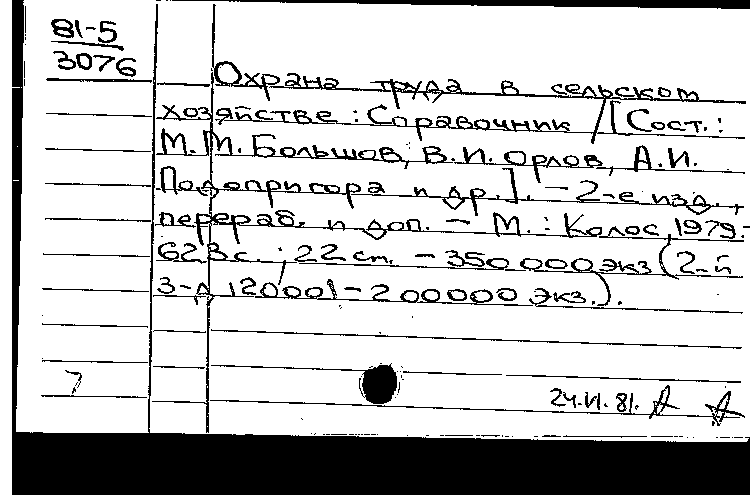 81-5
3076
Охрана труда в сельском
хозяйстве : Справочник / [Сост.:
М.М. Большов, В.И. Орлов, А.И.
Подопригора и др.]. - 2-е изд.,
перераб. и доп. - М. : Колос, 1979.-
623 с. ; 22 см. - 350 000 экз (2-й
3-д 120001 - 200000 экз.).
7
24.VI.81.